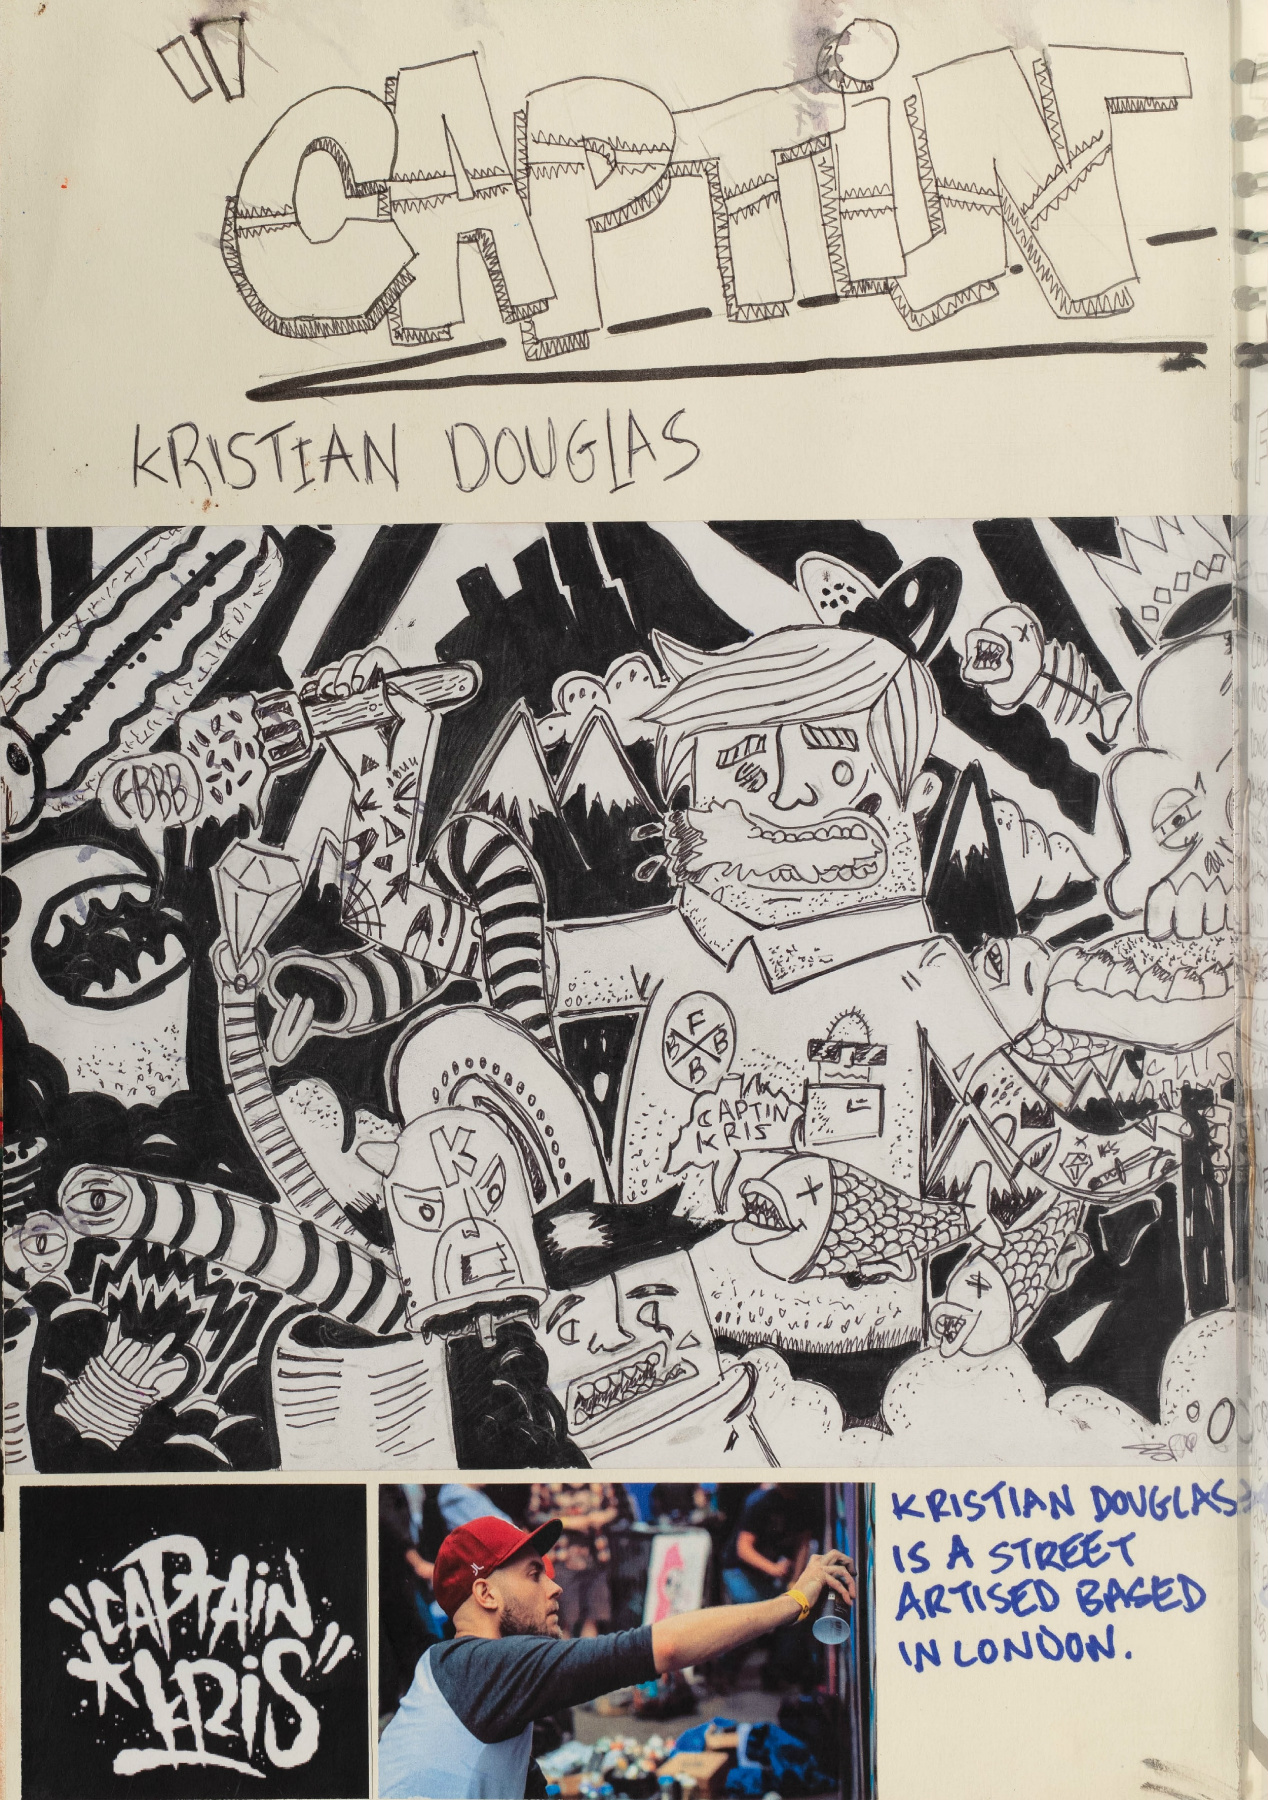 "CAPTiN
KRISTIAN DOUGLAS
GBBB
F
B B
B
CAPTIN
KRIS
K
"CAPTAiN
KRiS"
KRISTIAN DOUGLAS
IS A STREET
ARTISED BASED
IN LONDON.